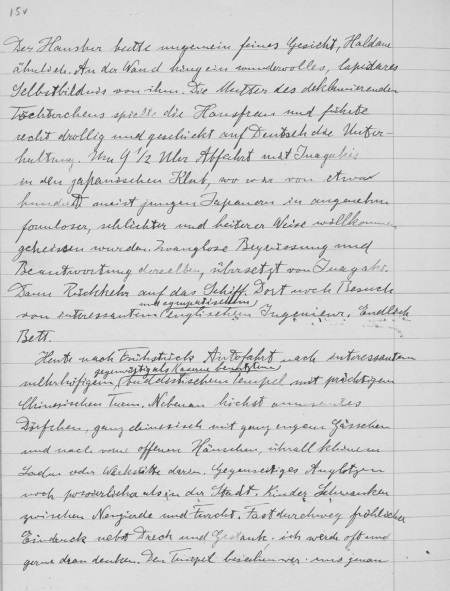 15v
Der Hausherr hatte ungemein feines Gesicht, Haldane
ähnlich. An der Wand hing ein wundervolles, lapidares
Selbstbildnis von ihm. Die Mutter des deklamierenden
Töchterchens spielte die Hausfrau und führte
recht drollig und geschickt auf Deutsch die Unter-
haltung. Um 9 1/2 Uhr Abfahrt mit Inagakis
in den japanischen Klub, wo wir von etwa
hundert meist jungen Japanern in angenehm
formloser, schlichter und heiterer Weise willkommen
geheissen wurden. Zwanglose Begrüssung und
Beantwortung derselben, übersetzt von Inagaki.
Dann Rückkehr auf das Schiff. Dort noch Besuch
von interessantem und sympathischem englischem Ingenieur. Endlich
Bett.
Heute nach Frühstück Autofahrt nach interessantem
mehrhöfigem, gegenwärtig als Kaserne benutztem buddistischem Tempel mit prächtigem
Chinesischem Turm. Nebenan höchst amusantes
Dörfchen, ganz chinesisch mit ganz engen Gässchen
und nach vorne offenen Häuschen, überall kleiner
Laden oder Werkstätte darin. Gegenseitiges Anglotzen
noch possierlicher als in der Stadt. Kinder Schwanken
zwischen Neugierde und Furcht. Fast durchweg fröhlicher
Eindruck nebst Dreck und Gestank. ich werde oft und
gerne dran denken. Den Tempel besehen wir uns genau